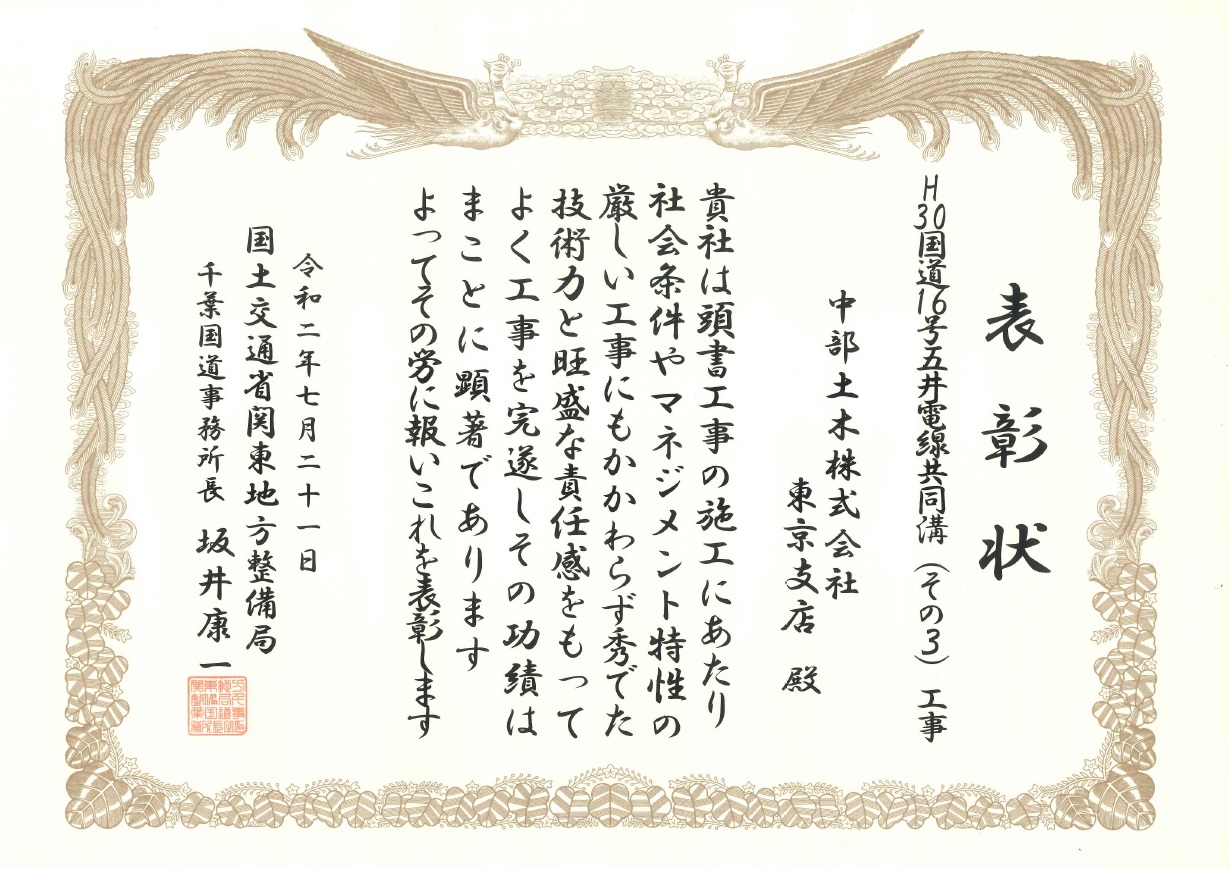 表彰状
H30国道16号五井電線共同溝(その3)工事
中部土木株式会社
東京支店 殿
貴社は頭書工事の施工にあたり
社会条件やマネジメント特性の
厳しい工事にもかかわらず秀でた
技術力と旺盛な責任感をもって
よく工事を完遂しその功績は
まことに顕著であります
よってその労に報いこれを表彰します
令和二年七月二十一日
国土交通省関東地方整備局
千葉国道事務所長 坂井康一